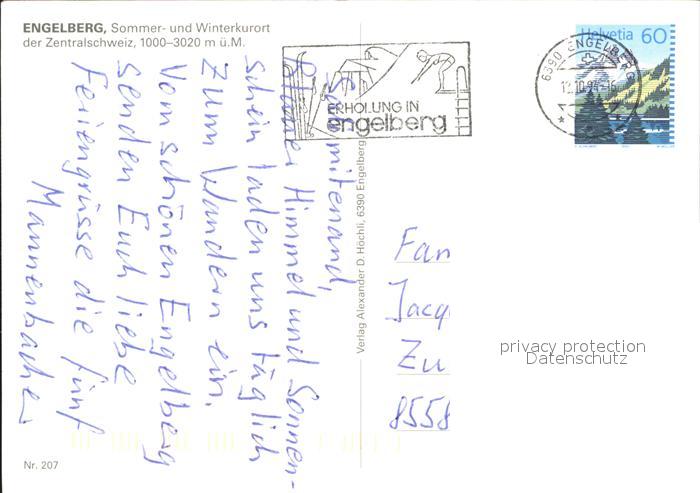 ENGELBERG, Sommer- und Winterkurort
der Zentralschweiz, 1000–3020 m ü.M.
ERHOLUNG IN
engelberg
6390 ENGELBERG
12.10.94-16
Helvetia 60
mitenand,
Blauer Himmel und Sonnen-
schein laden uns täglich
zum Wandern ein.
Vom schönen Engelberg
senden Euch liebe
Feriengrüsse die fünf
Mannenbacher
Verlag Alexander D. Höchli, 6390 Engelberg
Fam
Jacq
Zu
8558
privacy protection
Datenschutz
Nr. 207